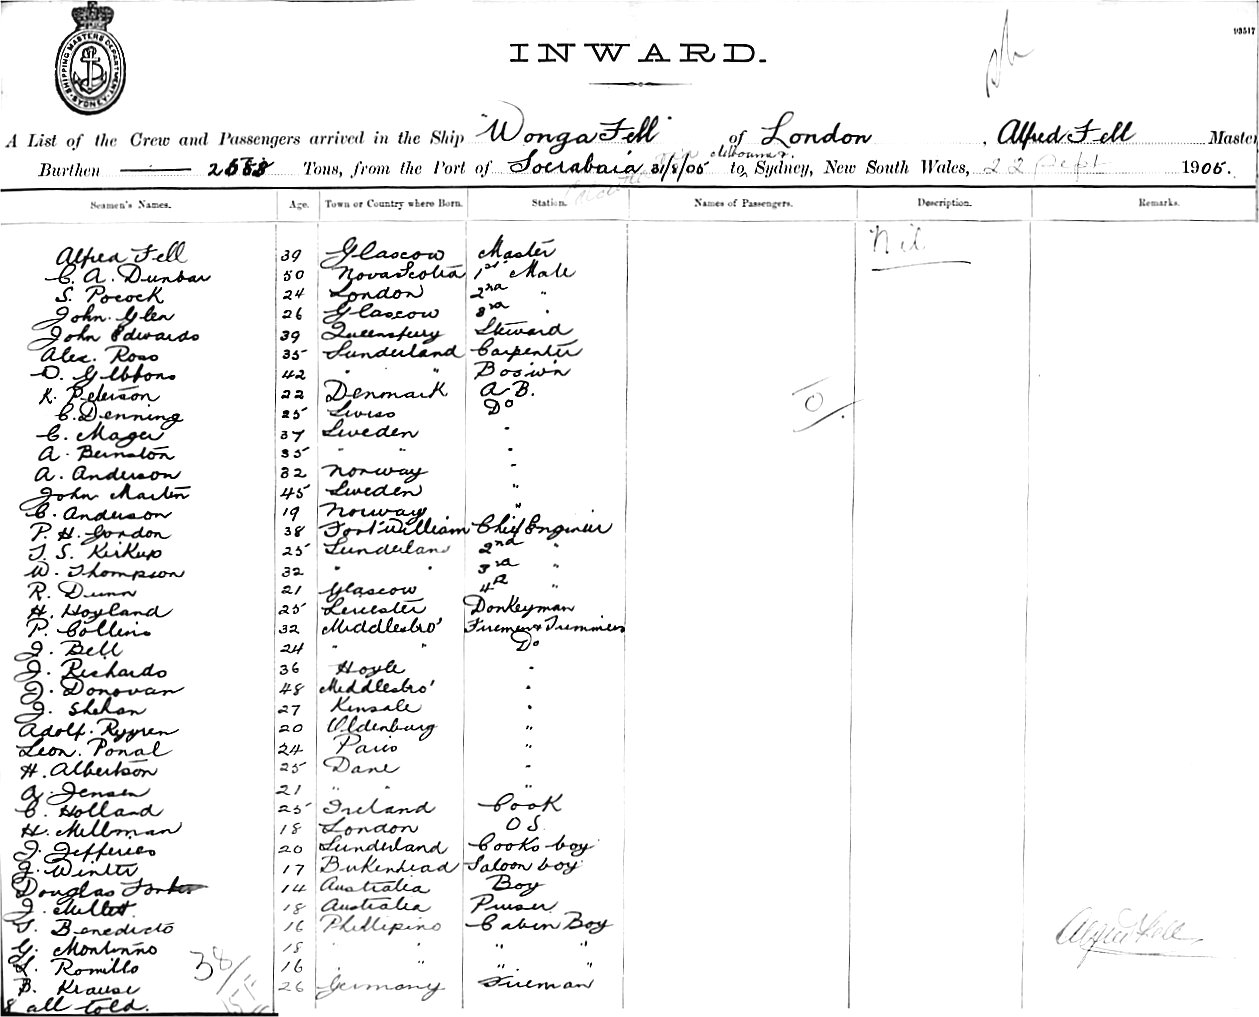 SHIPPING MASTERS DEPARTMENT SYDNEY
93517
INWARD.
A List of the Crew and Passengers arrived in the Ship "Wonga Fell" of London, Alfred Fell Master
Burthen Tons, from the Port of Soerabaia 31/8/05 Melbourne to Sydney, New South Wales, 22 Sept 1905.
Seamen's Names. Age. Town or Country where Born. Station. Names of Passengers. Description. Remarks.
Nil
Alfred Fell 39 Glascow Master
C. A. Dunbar 50 Nova Scotia 1st Mate
S. Pocock 24 London 2nd "
John Glen 26 Glascow 3rd "
John Edwards 39 Queensfury Steward
Alex. Ross 35 Sunderland Carpenter
O. Gibbons 42 " " Bos'n
K. Peterson 22 Denmark A.B.
C. Denning 25 Swiss Do
C. Mager 37 Sweden "
A. Bernston 35 " " "
A. Anderson 32 Norway "
John Martin 45 Sweden "
C. Anderson 19 Norway "
P. H. Gordon 38 Fort William Chief Engineer
T. S. Kirkup 25 Sunderland 2nd "
W. Thompson 32 " " 3rd "
R. Dunn 21 Glascow 4th "
H. Hoyland 25 Leicester Donkeyman
P. Collins 32 Middlesbro' Firemen & Trimmers
J. Bell 24 " " Do
J. Richards 36 Hoyle "
J. Donovan 48 Middlesbro' "
J. Shehan 27 Kinsale "
Adolf. Rygren 20 Oldenburg "
Leon. Ponal 24 Paris "
H. Albertson 25 Dane "
A. Jensen 21 " " "
C. Holland 25 Ireland Cook
H. Millman 18 London O S.
J. Jefferies 20 Sunderland Cooks boy
J. Winter 17 Birkenhead Saloon boy
Douglas 14 Australia Boy
J. Millett. 18 Australia Purser
T. Benedicto 16 Phillipino Cabin Boy
G. Montinno 18 " " " "
L. Romillo 16 " " " "
B. Krause 26 Germany Fireman
8 all told.
38/
Alfred Fell